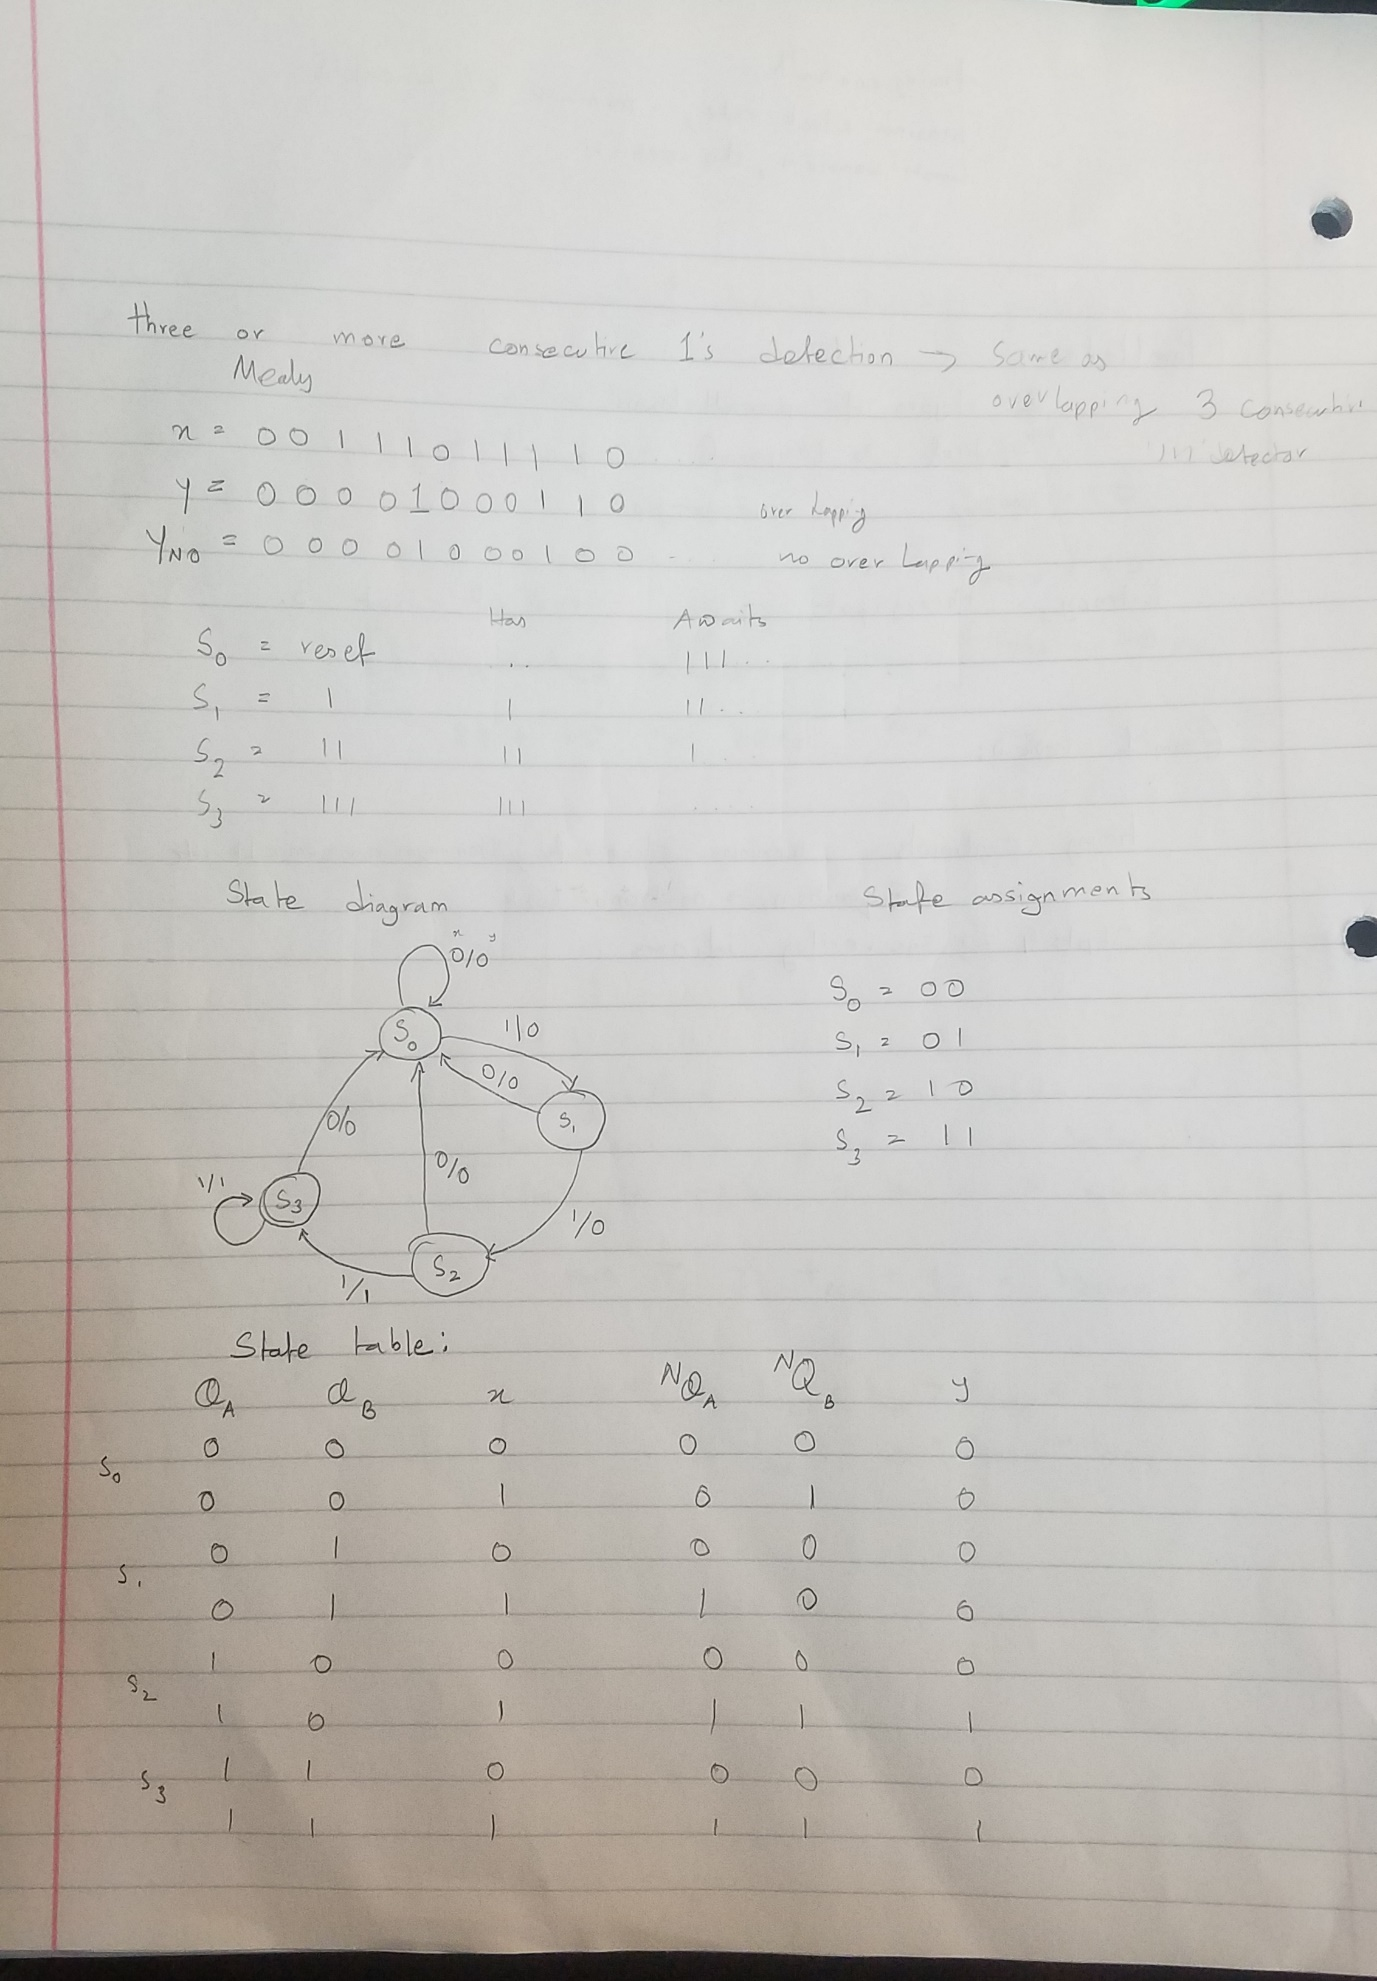 three or more consecutive 1's detection → Same as
Mealy
overlapping 3 consecutive
'111' detector
x = 0 0 1 1 1 0 1 1 1 1 0
y = 0 0 0 0 1 0 0 0 1 1 0 over lapping
YNO = 0 0 0 0 1 0 0 0 1 0 0 .. no over lapping
Has Awaits
S0 = reset .. 111..
S1 = 1 1 11..
S2 = 11 11 1
S3 = 111 111 ....
State diagram State assignments
x y
0/0
S0 = 00
S0 1/0
S1 = 01
0/0
S2 = 10
S1
0/0
S3 = 11
0/0
1/1
S3
1/0
S2
1/1
State table:
QA QB x NQA NQB y
S0
0 0 0 0 0 0
0 0 1 0 1 0
S1
0 1 0 0 0 0
0 1 1 1 0 0
S2
1 0 0 0 0 0
1 0 1 1 1 1
S3
1 1 0 0 0 0
1 1 1 1 1 1